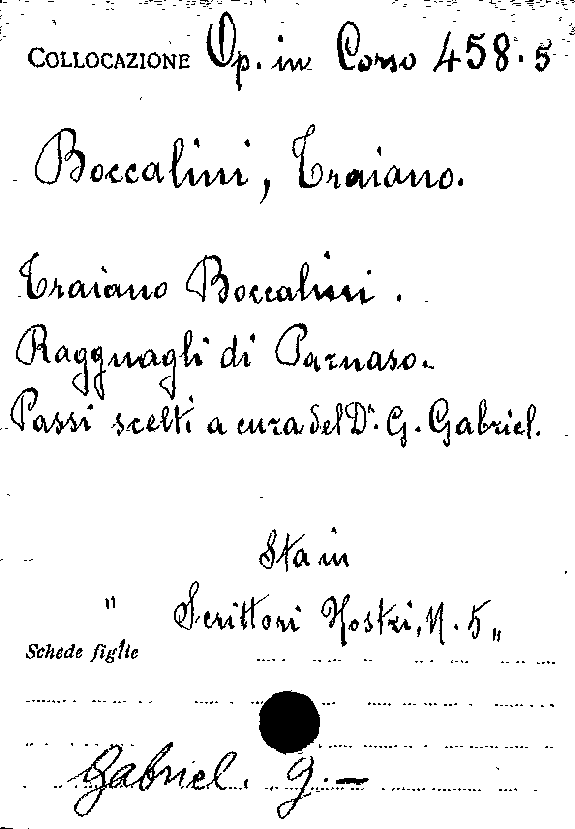 COLLOCAZIONE Op. in Corso 458.5
Boccalini, Traiano.
Traiano Boccalini.
Ragguagli di Parnaso.
Passi scelti a cura del Dr. G. Gabriel.
Sta in
" Scrittori Nostri, N. 5 "
Schede figlie
Gabriel. G.—